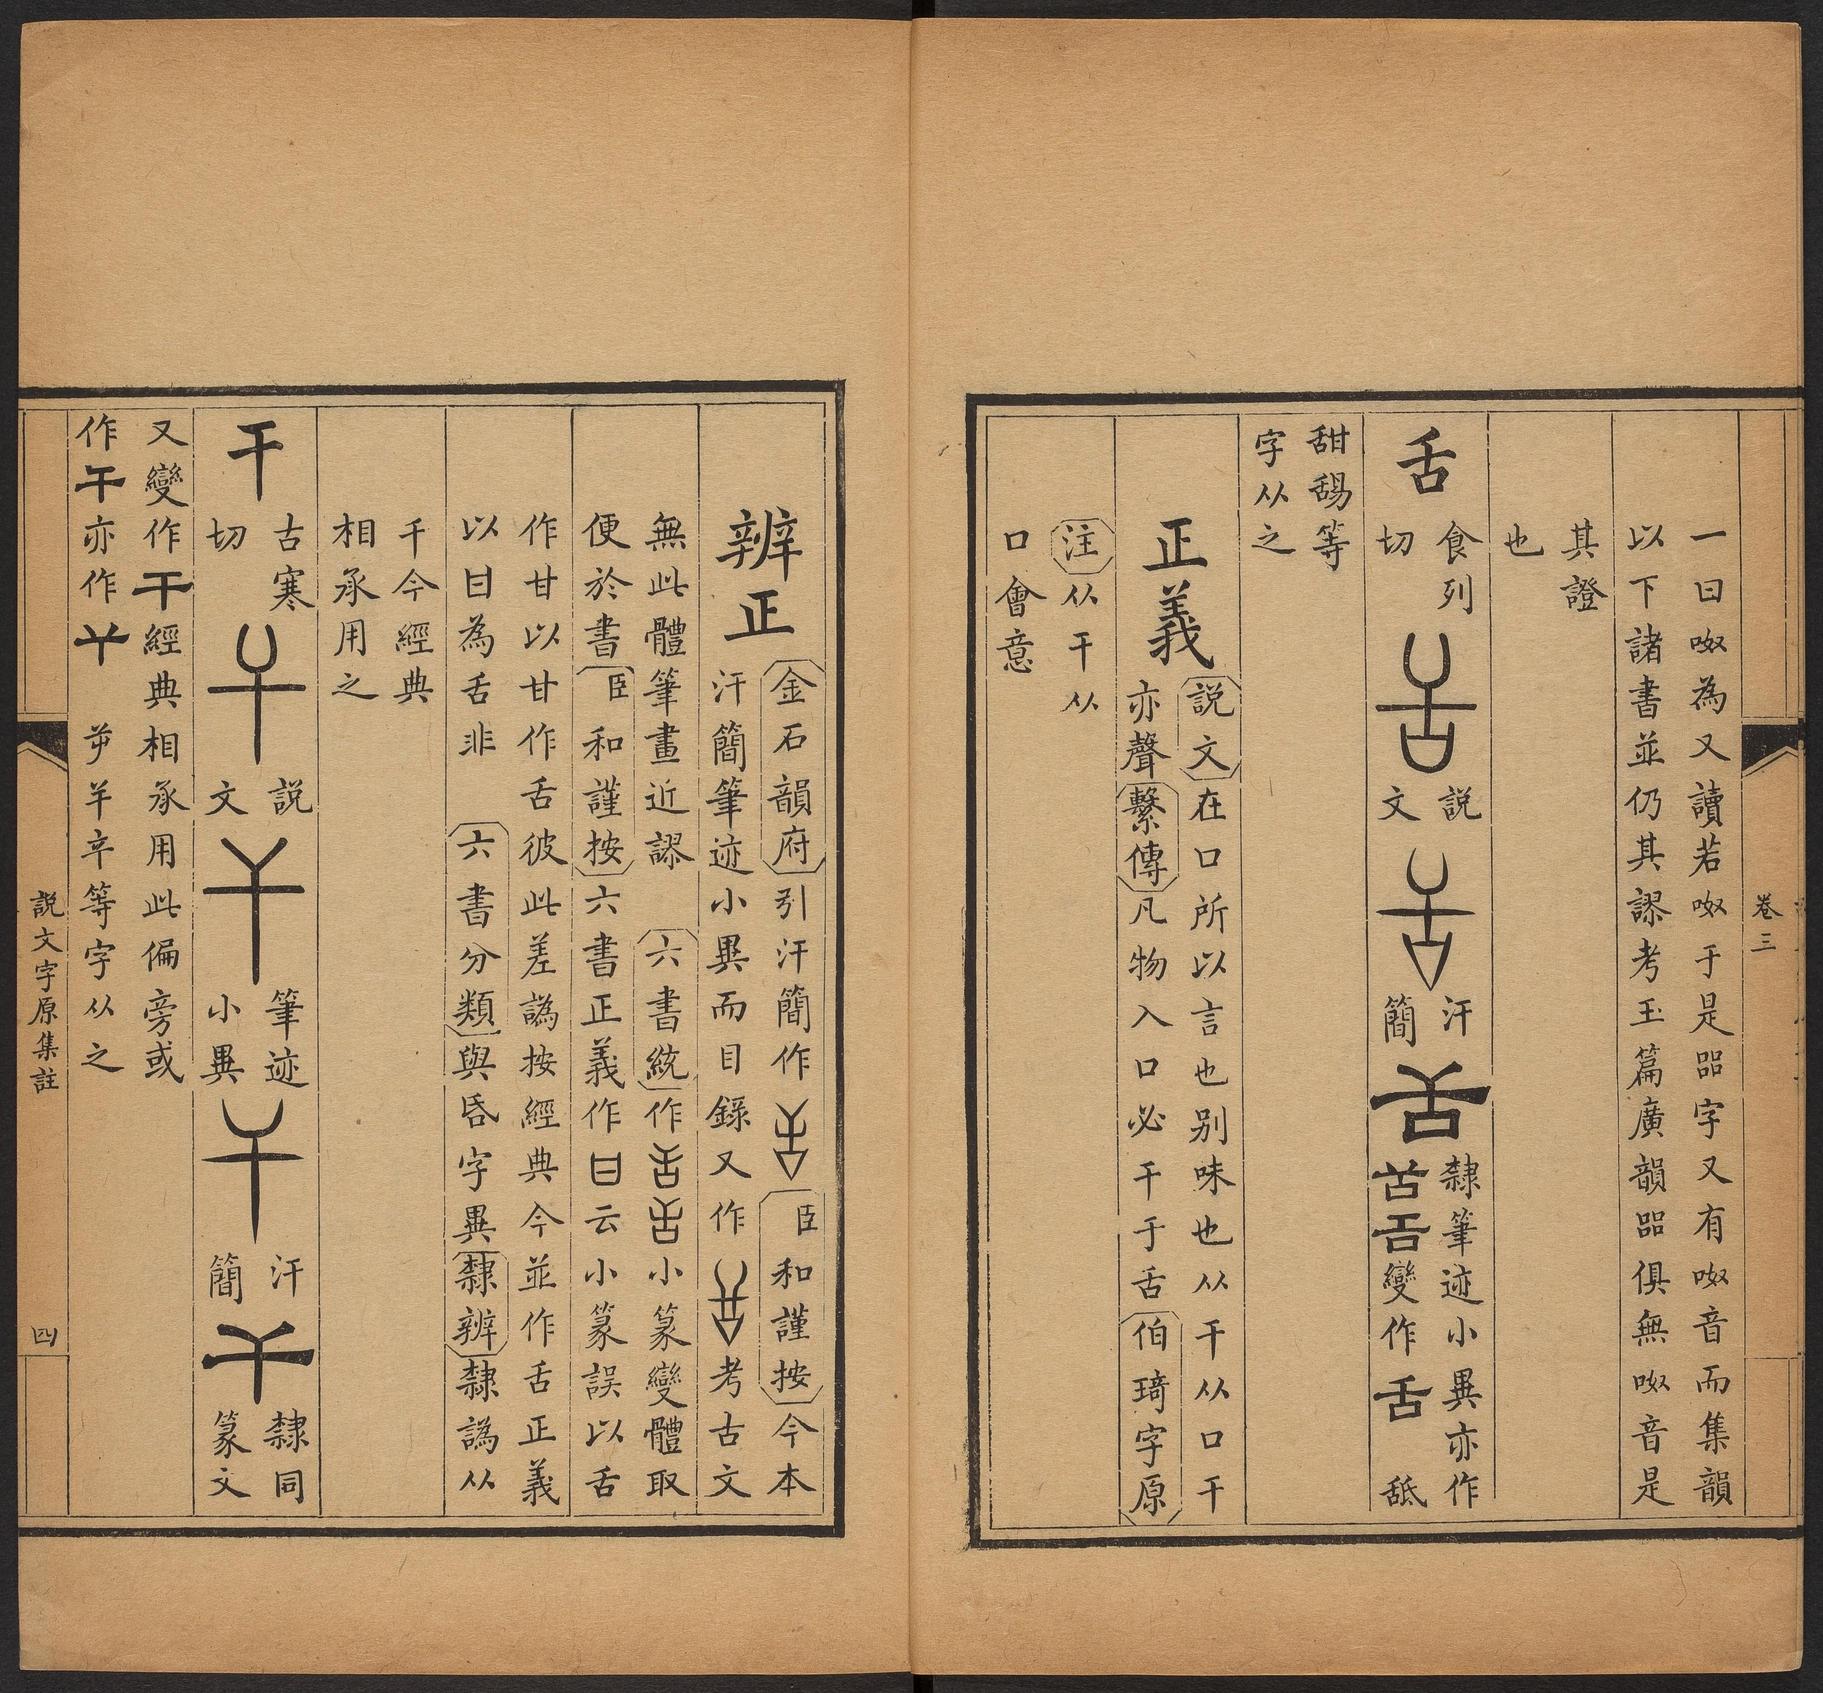 一曰呶為又讀若呶于是㗊字又有呶音而集韻
以下諸書並仍其謬考玉篇廣韻㗊俱無呶音是
其證
也
舌
食列
切
説
文
汗
簡
隸筆迹小異亦作
變作舌 舐
甜舓等
字从之
正義
説文在口所以言也别味也从干从口干
亦聲繫傳凡物入口必干于舌伯琦字原
注从干从
口會意
卷三
辨正
金石韻府引汗簡作
臣和謹按今本
汗簡筆迹小異而目錄又作
考古文
無此體筆畫近謬 六書統作
小篆變體取
便於書臣和謹按六書正義作
云小篆誤以舌
作甘以甘作舌彼此差譌按經典今並作舌正義
以曰為舌非 六書分類與昏字異隸辨隸譌从
千今經典
相承用之
干
古寒
切
説
文
筆迹
小異
汗
簡
隸同
篆文
又變作干經典相承用此偏旁或
作午亦作
屰羊辛等字从之
説文字原集註
四